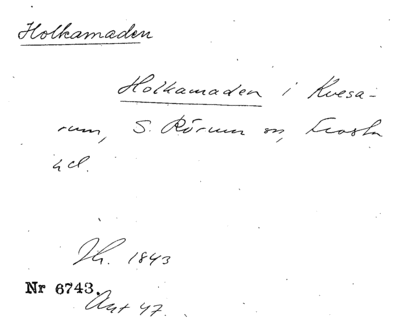 Holkamaden
Holkamaden i Kvesa-
rum, S. Rörum sn, Frosta
hd.
1843
Nr 6743.
47.